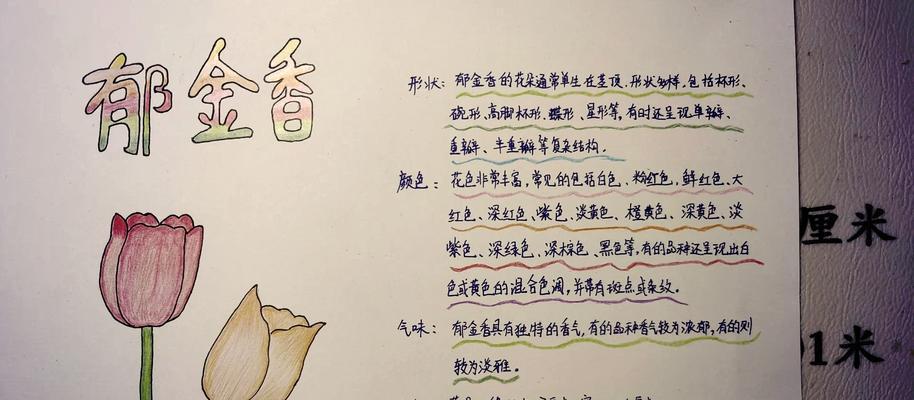 郁金香
形状：郁金香的花朵通常单生在茎顶，形状多样，包括杯形、
碗形、高脚杯形、蝶形、星形等，有时还呈现单瓣、
重瓣、半重瓣等复杂结构。
颜色：花色非常丰富，常见的包括白色、粉红色、鲜红色、大
红色、深红色、紫色、淡黄色、橙黄色、深黄色、淡
紫色、深绿色、深棕色、黑色等，有的品种还呈现出白
色或黄色的混合色调，并带有斑点或条纹。
气味：郁金香具有独特的香气，有的品种香气较为浓郁，有的则
较为淡雅。
厘米
01米